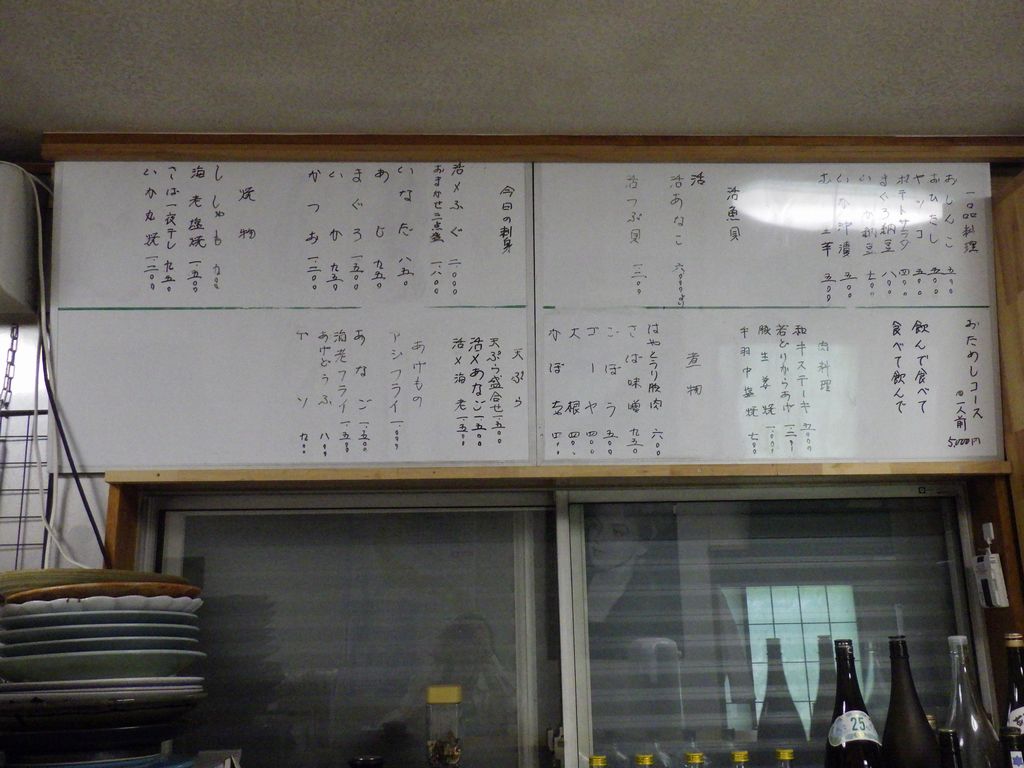 一品料理
おしんこ 五〇〇
おひたし 五〇〇
ヤッコ 五〇〇
ポテトサラダ 四〇〇
まぐろ納豆 八〇〇
いか納豆 七〇〇
いか沖漬 五〇〇
活魚貝
活あなご 六〇〇〇より
活つぶ貝 一二〇〇
おためしコース
一人前
5,000円
飲んで食べて
食べて飲んで
肉料理
和牛ステーキ
若どりからあげ
豚生姜焼 一〇〇〇
煮物
はやとうり豚肉 六〇〇
さば味噌 九五〇
ごぼう 五〇〇
ゴーヤ 四〇〇
大根 四〇〇
かぼちゃ 四〇〇
今日の刺身
活〆ふぐ 二〇〇〇
おまかせ三点盛 一八〇〇
いなだ 八五〇
あじ 九五〇
まぐろ 一五〇〇
いか 九五〇
かつお 一二〇〇
焼物
ししゃも 九〇〇
海老塩焼 一五〇〇
さば一夜干し 九五〇
いか丸焼 一二〇〇
天ぷら
天ぷら盛合せ 一五〇〇
活〆あなご 一五〇〇
活〆海老 一五〇〇
あげもの
アジフライ 一〇〇〇
あなご 一五〇〇
海老フライ 一五〇〇
あげどうふ 八〇〇
ナソ 九〇〇
25